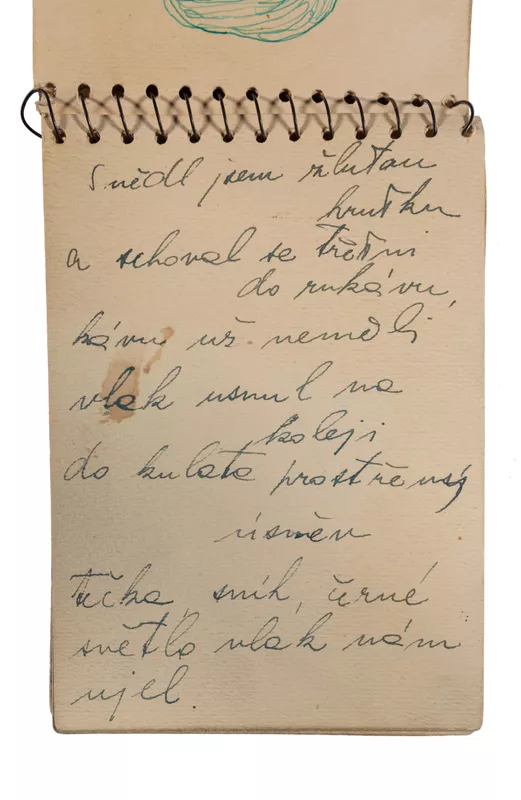 Snědl jsem žlutou
hrušku
a schoval se třetiny
do rukávu,
kávu už neměli
vlak usnul na
koleji
do kulata prostřený
úsměv
tečka, sníh, černé
světlo vlak nám
ujel.